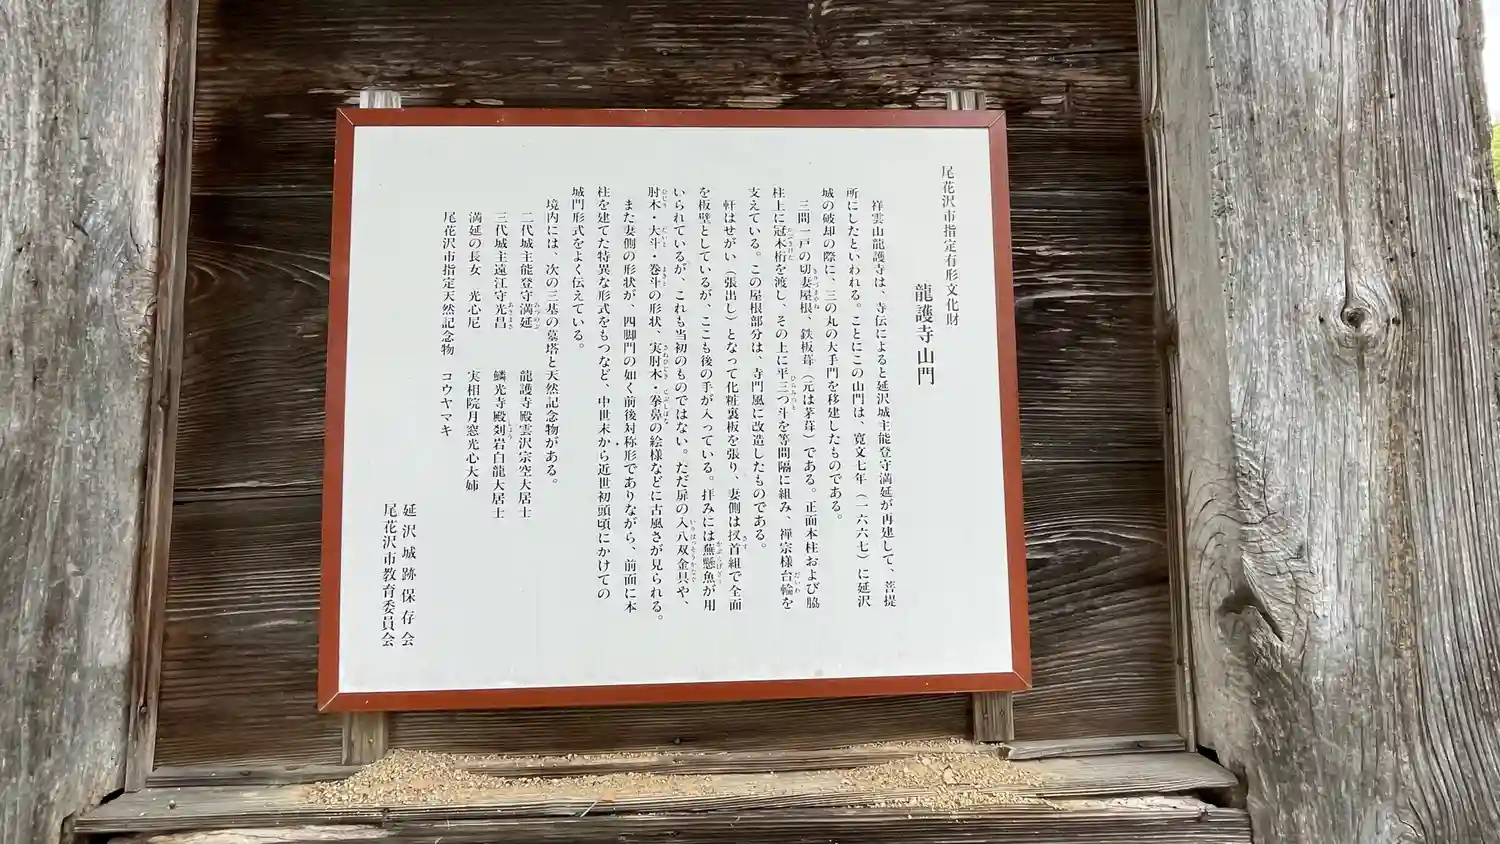 尾花沢市指定有形文化財
龍護寺山門
祥雲山龍護寺は、寺伝によると延沢城主能登守満延が再建して、菩提
所にしたといわれる。ことにこの山門は、寛文七年（一六六七）に延沢
城の破却の際に、三の丸の大手門を移建したものである。
三間一戸の切妻屋根、鉄板葺（元は茅葺）である。正面本柱および脇
柱上に冠木桁を渡し、その上に平三つ斗を等間隔に組み、禅宗様台輪を
支えている。この屋根部分は、寺門風に改造したものである。
軒はせがい（張出し）となって化粧裏板を張り、妻側は扠首組で全面
を板壁としているが、ここも後の手が入っている。拝みには蕪懸魚が用
いられているが、これも当初のものではない。ただ扉の入八双金具や、
肘木・大斗・巻斗の形状、実肘木・拳鼻の絵様などに古風さが見られる。
また妻側の形状が、四脚門の如く前後対称形でありながら、前面に本
柱を建てた特異な形式をもつなど、中世末から近世初頭頃にかけての
城門形式をよく伝えている。
境内には、次の三基の墓塔と天然記念物がある。
二代城主能登守満延　龍護寺殿雲沢宗空大居士
三代城主遠江守光昌　鱗光寺殿剡岩白龍大居士
満延の長女　光心尼　実相院月窓光心大姉
尾花沢市指定天然記念物　コウヤマキ
延沢城跡保存会
尾花沢市教育委員会